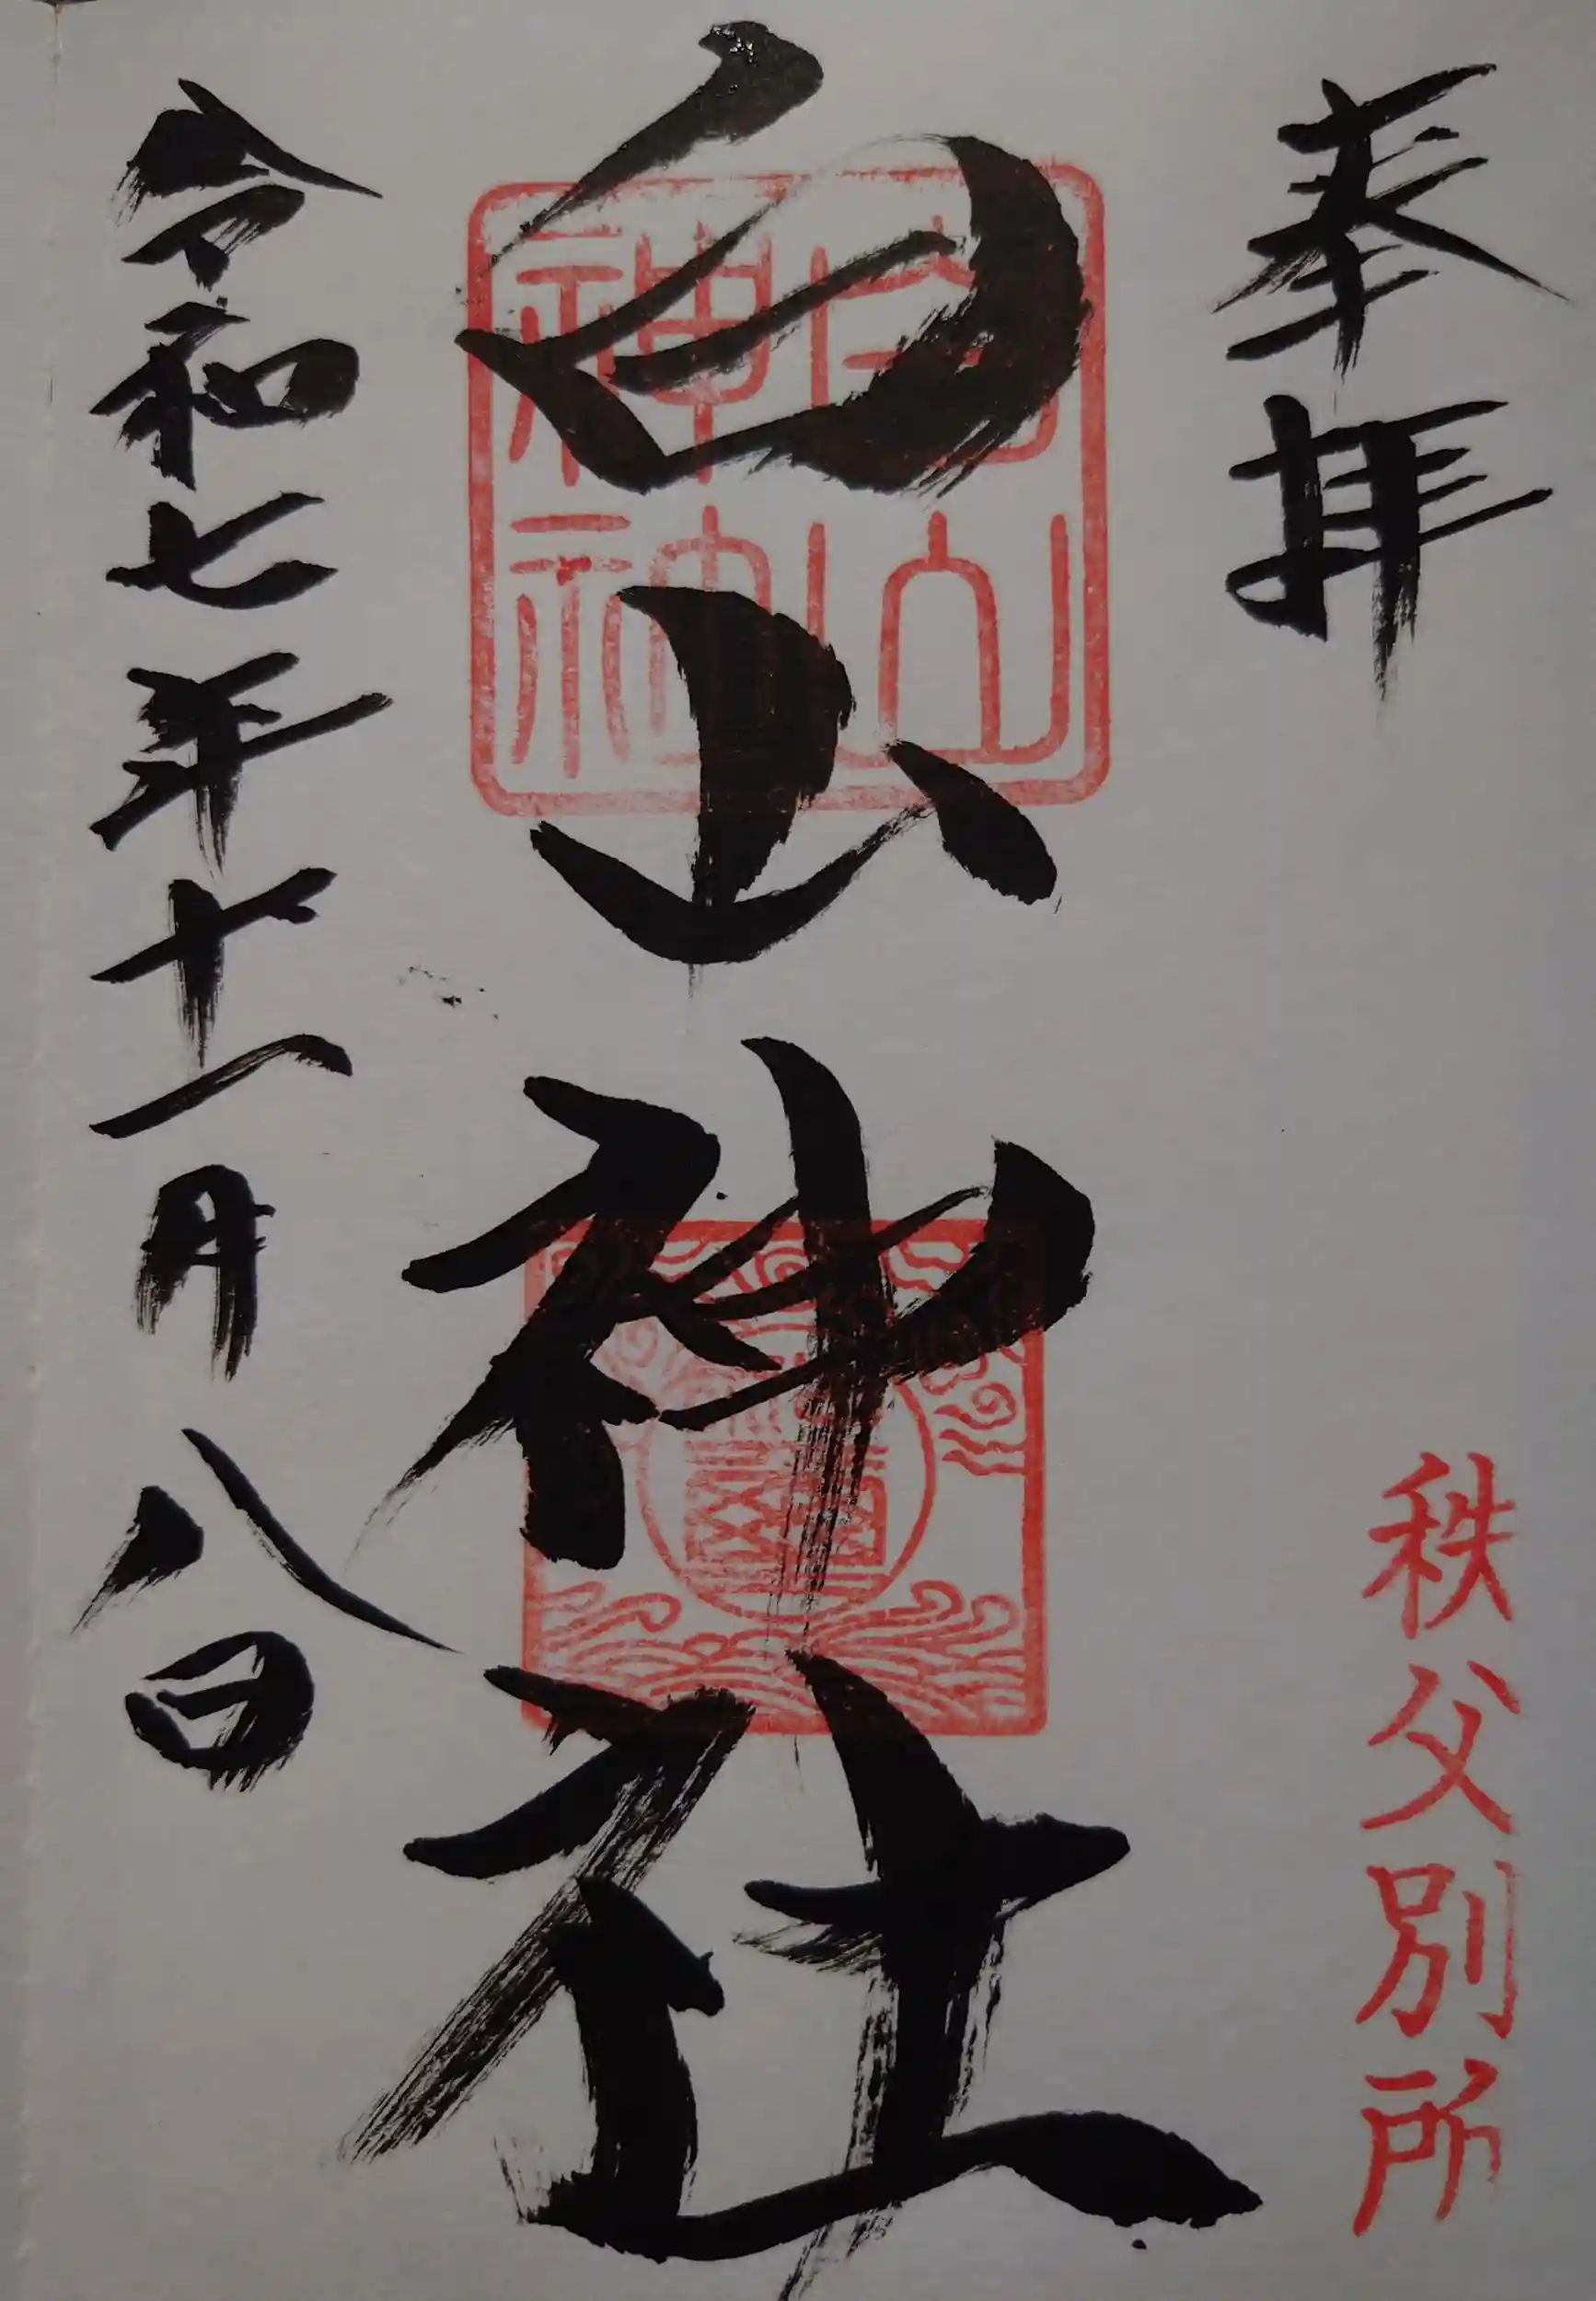 奉拝
秩父別所
白山神社
白山
神社
令和七年十一月八日